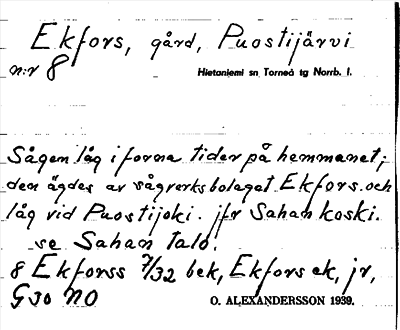 Ekfors, gård, Puostijärvi
n:r 8
Hietaniemi sn Torneå tg Norrb. l.
Sågen låg i forna tider på hemmanet;
den ägdes av sågverksbolaget Ekfors och
låg vid Puostijoki. jfr Sahankoski.
se Sahan talo.
8 Ekforss 7/32 bek, Ekfors ek, jr,
G30 NO
O. ALEXANDERSSON 1939.